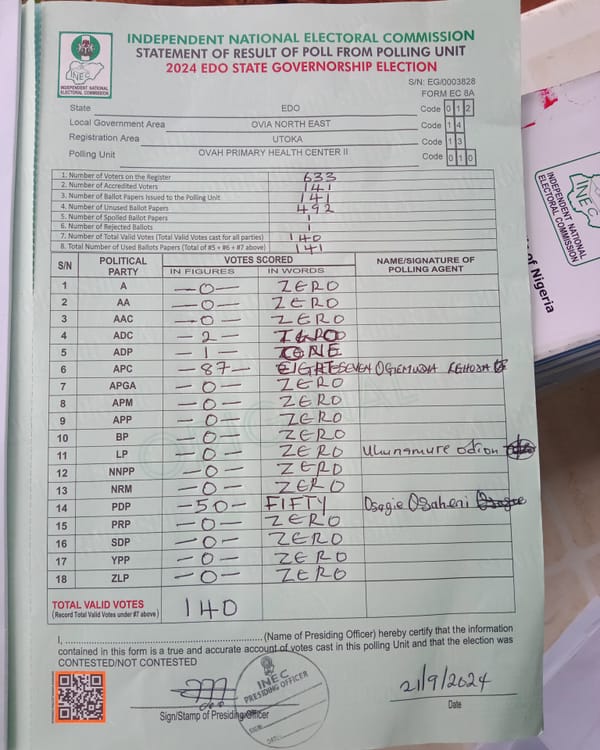 INDEPENDENT NATIONAL ELECTORAL COMMISSION
STATEMENT OF RESULT OF POLL FROM POLLING UNIT
2024 EDO STATE GOVERNORSHIP ELECTION
INEC
INDEPENDENT NATIONAL ELECTORAL COMMISSION
S/N: EG/0003828
FORM EC 8A
State EDO Code 0 1 2
Local Government Area OVIA NORTH EAST Code 1 4
Registration Area UTOKA Code 1 3
Polling Unit OVAH PRIMARY HEALTH CENTER II Code 0 1 0
1. Number of Voters on the Register 633
2. Number of Accredited Voters 141
3. Number of Ballot Papers Issued to the Polling Unit 141
4. Number of Unused Ballot Papers 492
5. Number of Spoiled Ballot Papers 1
6. Number of Rejected Ballots 1
7. Number of Total Valid Votes (Total Valid Votes cast for all parties) 140
8. Total Number of Used Ballots Papers (Total of #5 + #6 + #7 above) 141
S/N POLITICAL PARTY VOTES SCORED IN FIGURES IN WORDS NAME/SIGNATURE OF POLLING AGENT
1 A -0- ZERO
2 AA -0- ZERO
3 AAC -0- ZERO
4 ADC -2-
5 ADP -1- ONE
6 APC -87- EIGHTSEVEN
7 APGA -0- ZERO
8 APM -0- ZERO
9 APP -0- ZERO
10 BP -0- ZERO
11 LP -0- ZERO Uhunamure odion
12 NNPP -0- ZERO
13 NRM -0- ZERO
14 PDP -50- FIFTY Osagie Osaheni
15 PRP -0- ZERO
16 SDP -0- ZERO
17 YPP -0- ZERO
18 ZLP -0- ZERO
TOTAL VALID VOTES 140
(Record Total Valid Votes under #7 above)
I, ........ (Name of Presiding Officer) hereby certify that the information
contained in this form is a true and accurate account of votes cast in this polling Unit and that the election was
CONTESTED/NOT CONTESTED
INEC
PRESIDING OFFICER
SIGN:
DATE:
21/9/2024
Sign/Stamp of Presiding Officer Date
INEC
INDEPENDENT NATIONAL
ELECTORAL COMMISSION
of Nigeria